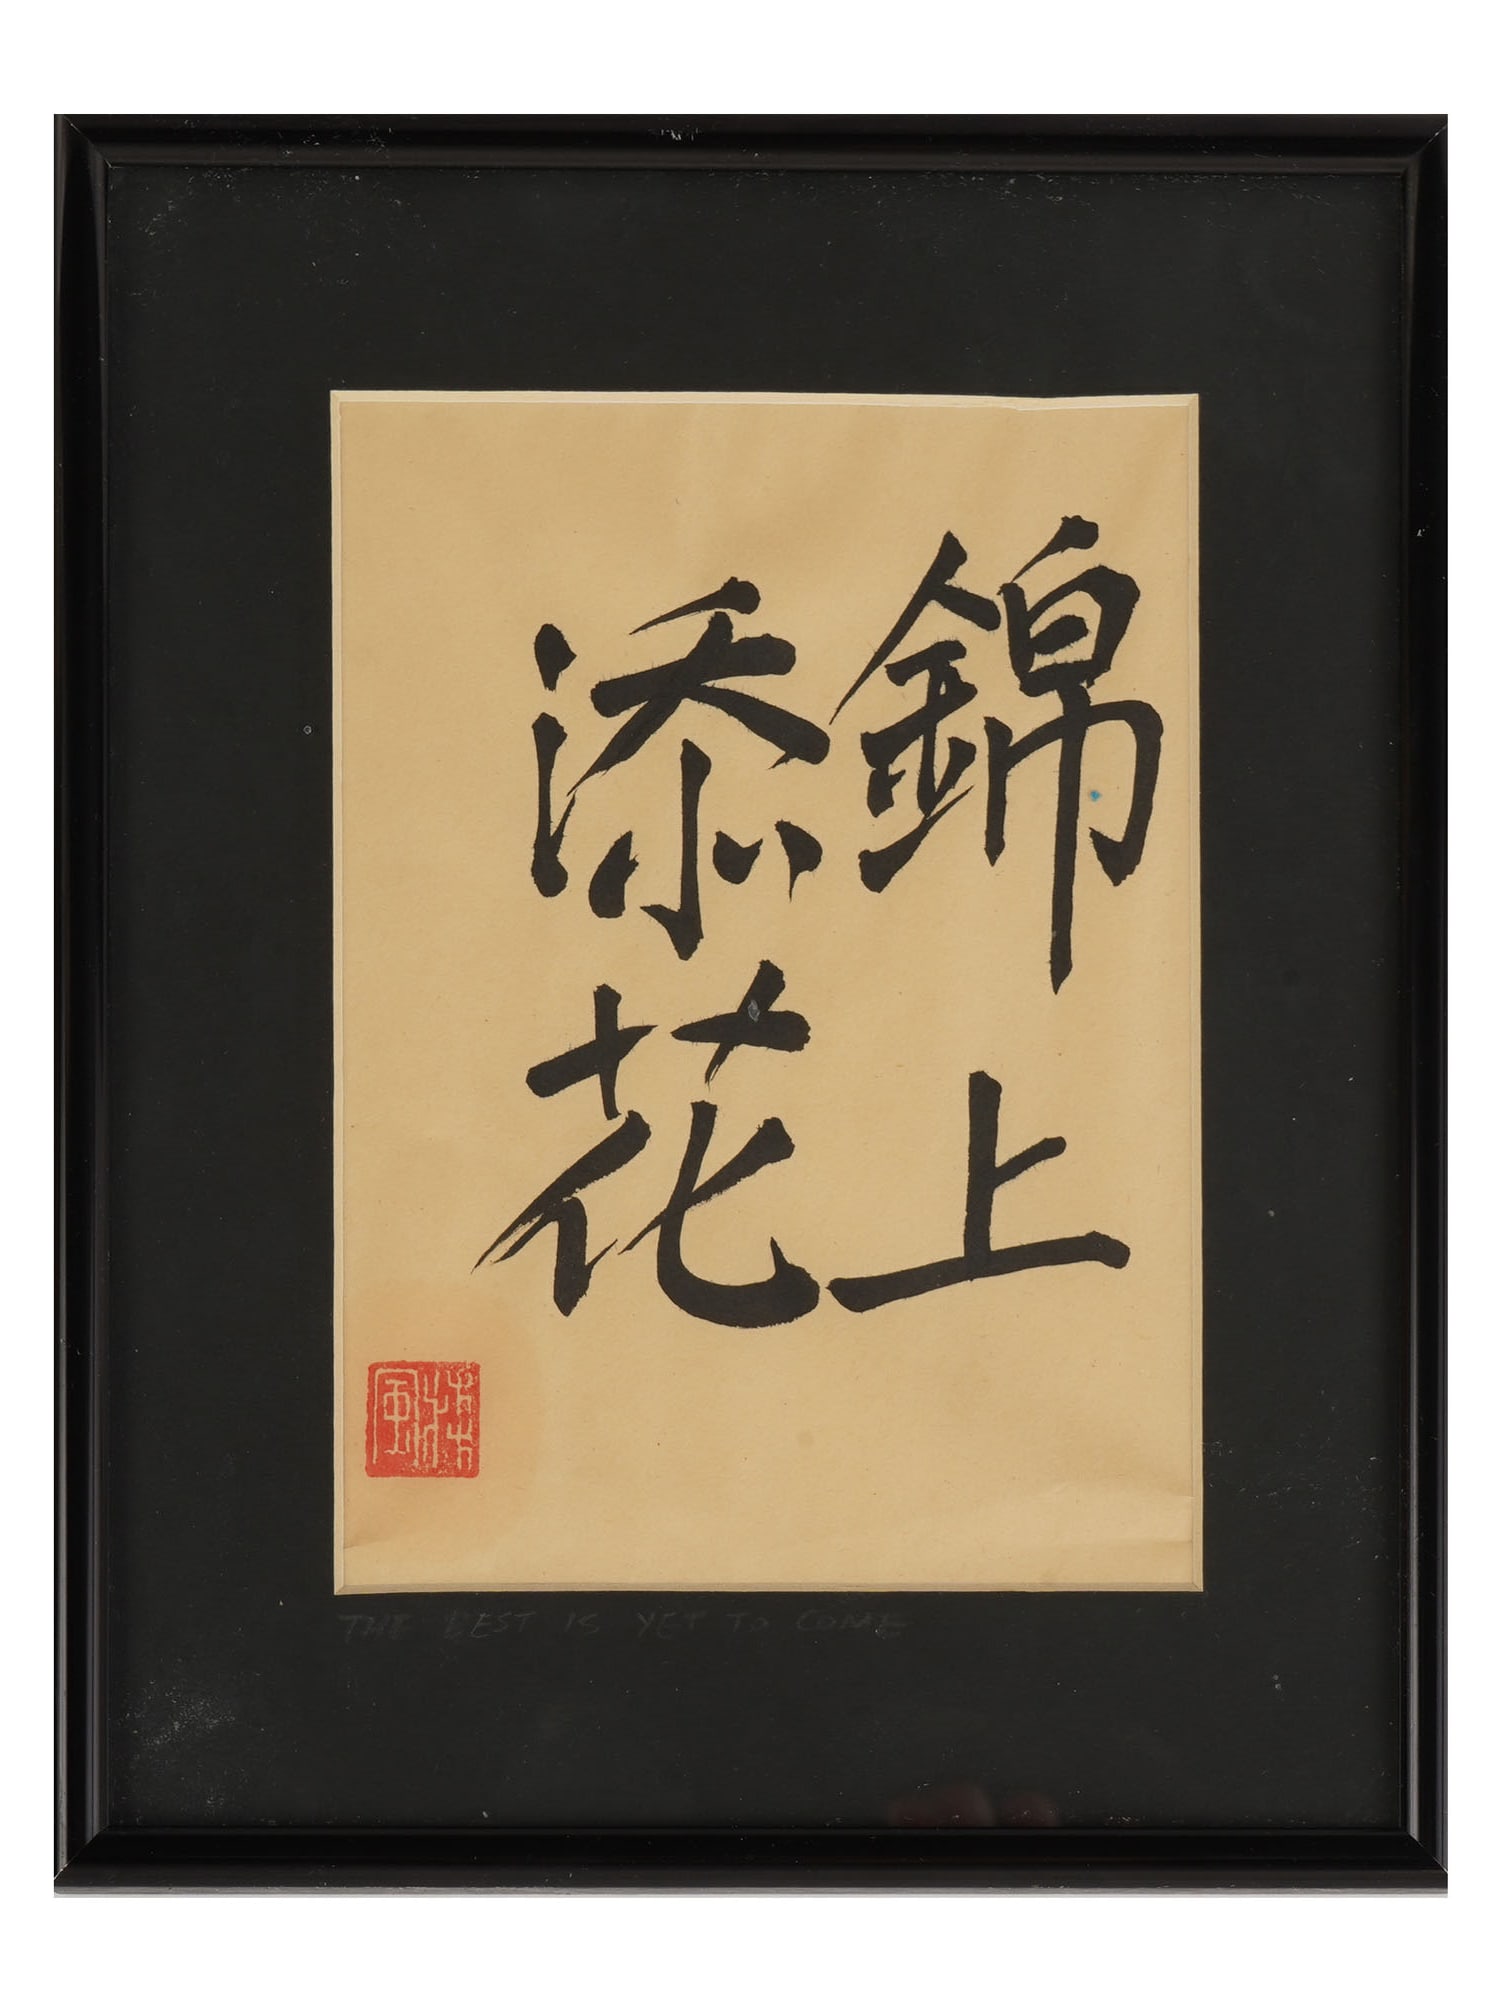 錦上
添花
THE BEST IS YET TO COME